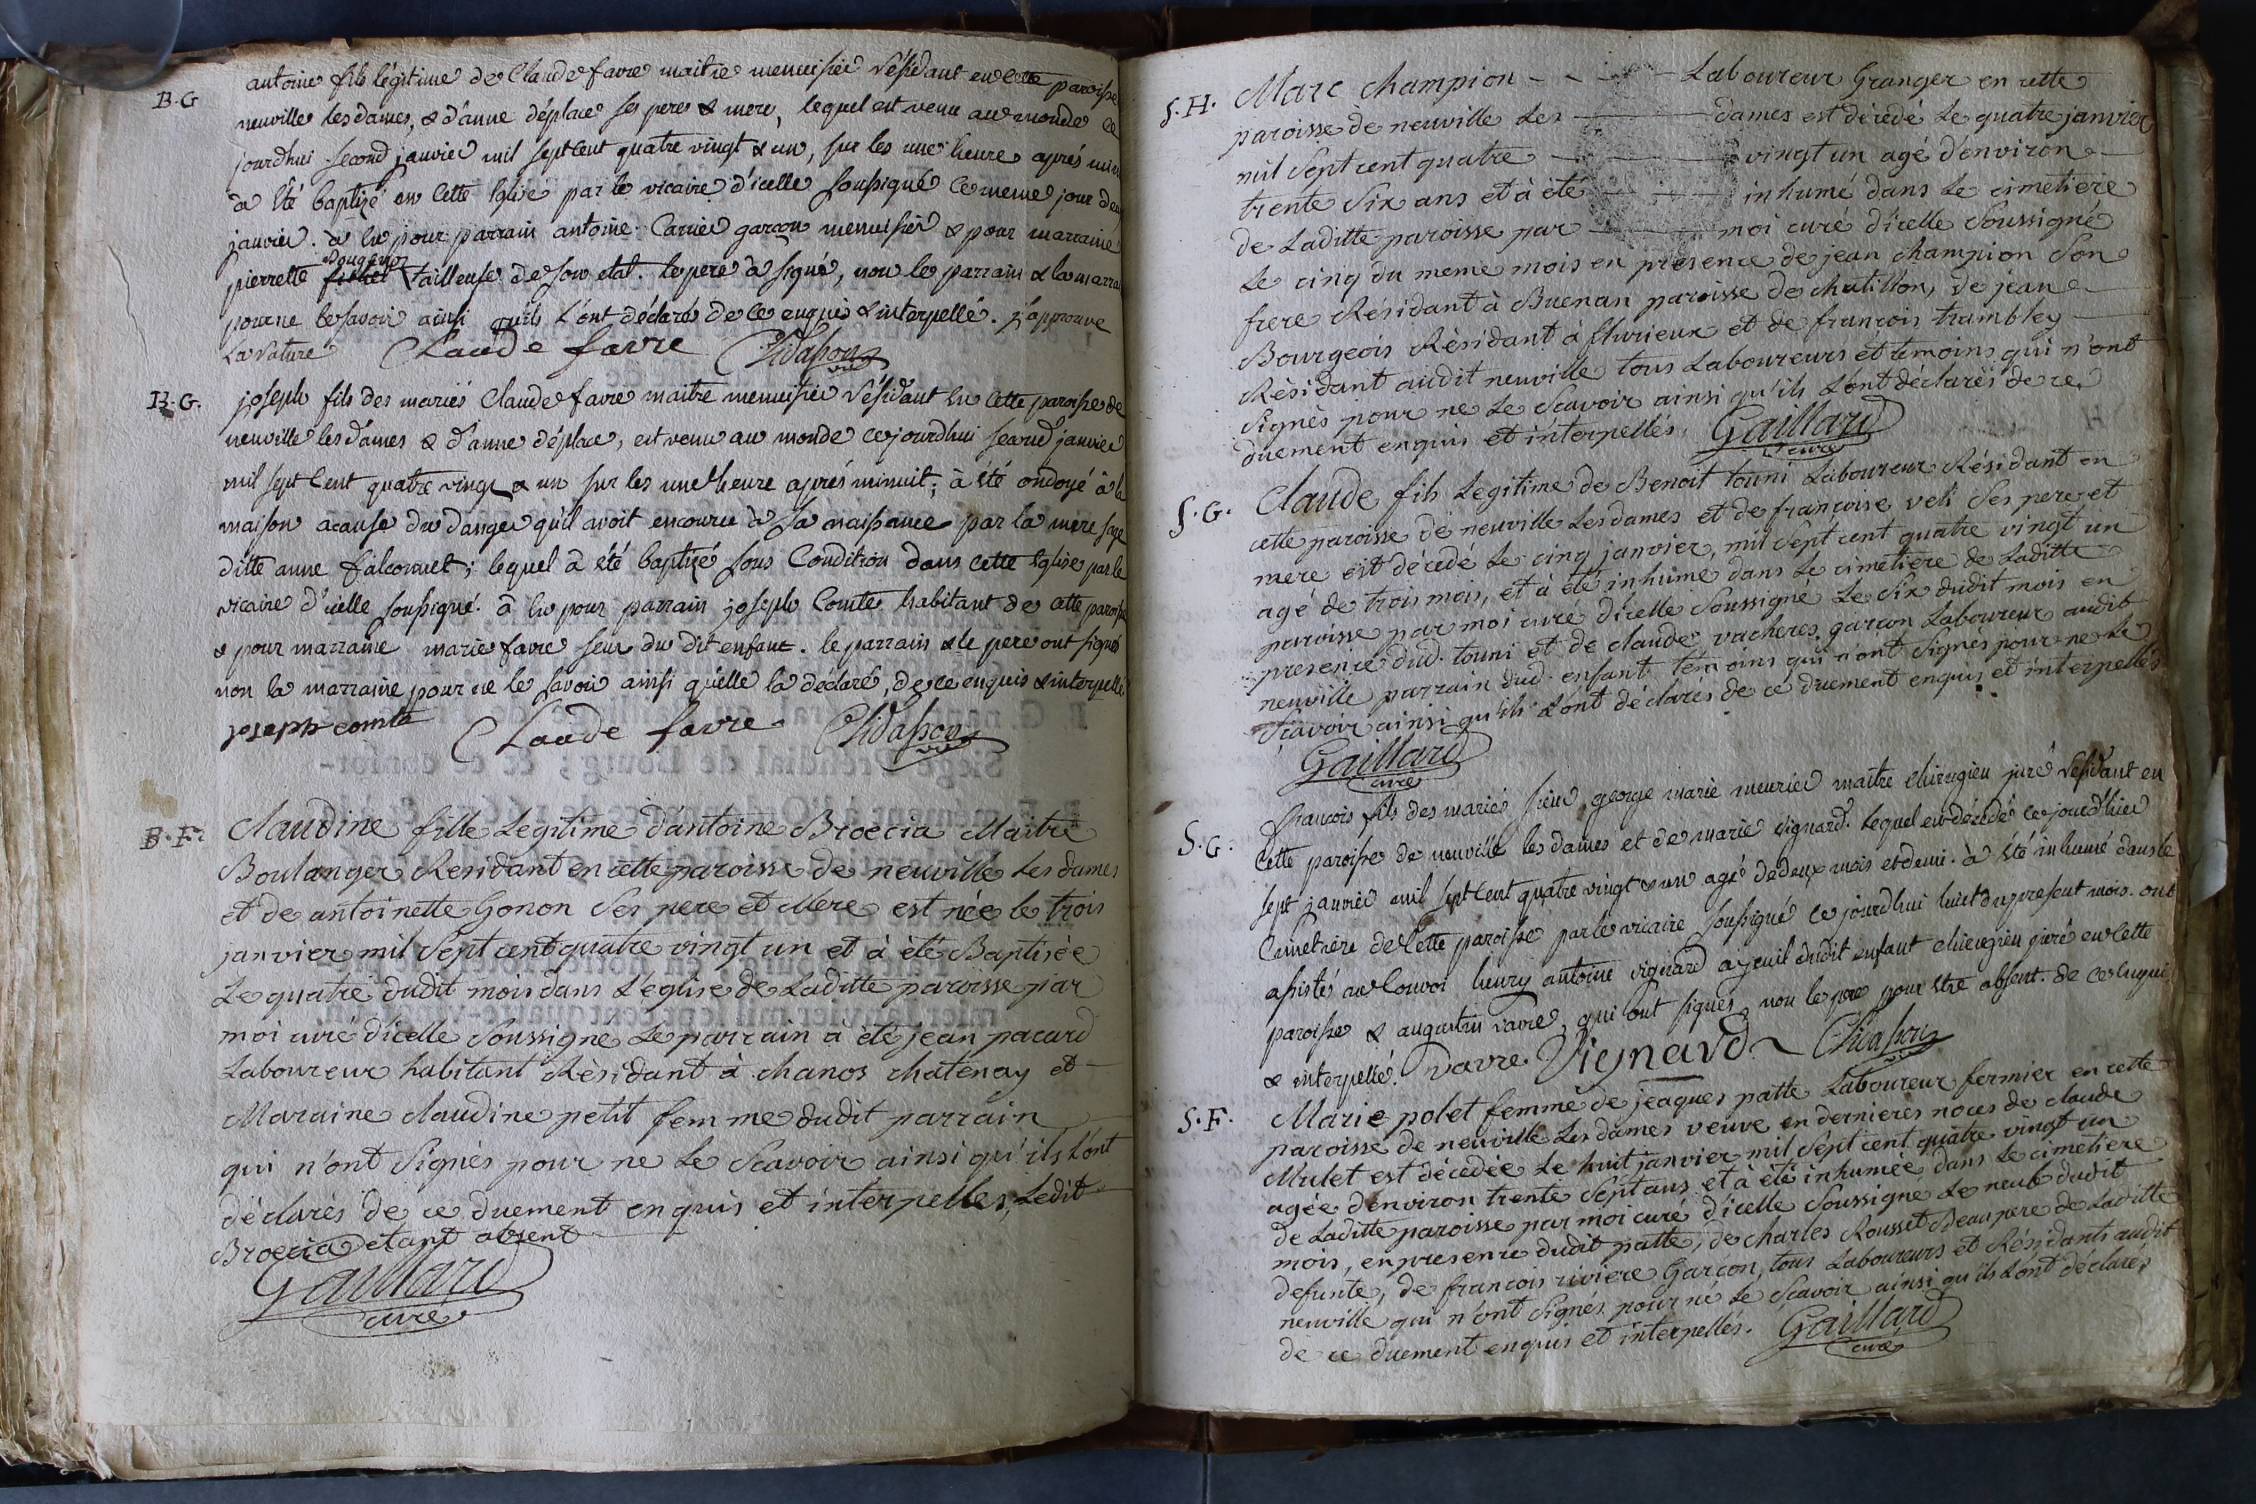 B.G
antoine fils légitime de Claude favre maitre menuisier résidant en cette paroisse
neuville les dames, & d'anne déplace ses pere & mere, lequel est venu au monde ce
jourdhui second janvier mil sept cent quatre vingt & un, sur les une heure aprés
à été baptizé en cette Eglise par le vicaire d'icelle soussigné le meme jour deux
janvier. à eu pour parrain antoine Carrier garçon menuisier & pour marraine
pierrette tailleuse de son etat. le pere à signé, non le parrain & la
pour ne le savoir ainsi qu'ils l'ont déclaré de ce enquis & interpellé. j'approuve
la rature Claude favre Chidasson
vic
B.G.
joseph fils des mariés Claude favre maitre menuisier résidant en cette paroisse de
neuville les dames & d'anne déplace, est venu au monde cejourdhui second janvier
mil sept cent quatre vingt & un sur les une heure aprés minuit; à été ondoyé à la
maison acause du danger qu'il avoit encouru à sa naissance par la mere sage
ditte anne falconnet; lequel à été baptizé sous Condition dans cette Eglise par le
vicaire d'icelle soussigné. à eu pour parrain joseph Comte habitant de cette paroisse
& pour marraine marie favre seur du dit enfant. le parrain & le pere ont signés
non la marraine pour ne le savoir ainsi qu'elle la déclaré, de ce enquis & interpellé
joseph comte Claude favre Chidasson
vic
B.F.
Claudine fille Legitime d'antoine Broccia Maitre
Boulanger Residant en cette paroisse de neuville Les dames
et de antoinette Gonon Ses pere et Mere est née le trois
janvier mil Sept cent quatre vingt un et à été Baptisée
Le quatre dudit mois dans L'église de Laditte paroisse par
moi curé d'icelle Soussigné Le parrain a été jean pacard
Laboureur habitant Résidant à chanos chatenay et
Maraine claudine petit femme dudit parrain
qui n'ont Signés pour ne Le Scavoir ainsi qu'ils L'ont
déclarés de ce duement enquis et interpellés, Ledit
Broccia etant absent
Gaillard
curé
S.H.
Marc champion Laboureur Granger en cette
paroisse de neuville Les dames est décédé Le quatre janvier
mil Sept cent quatre vingt un agé d'environ
trente Six ans et à été inhumé dans Le cimetiere
de Laditte paroisse par moi curé d'icelle Soussigné
Le cinq du meme mois en présence de jean champion Son
frere Résidant à Buenan paroisse de chatillon, de jean
Bourgeois Résidant à fluvieux et de francois trambley
Résidant audit neuville tous Laboureurs et temoins qui n'ont
Signés pour ne Le Scavoir ainsi qu'ils L'ont déclarés de ce
duement enquis et interpellés. Gaillard
curé
S.G.
Claude fils Legitime de Benoit touni Laboureur Résidant en
cette paroisse de neuville Les dames et de francoise veli Ses pere et
mere est décédé Le cinq janvier, mil Sept cent quatre vingt un
agé de trois mois, et à été inhumé dans Le cimetiere de Laditte
paroisse par moi curé d'icelle Soussigné Le Six dudit mois en
presence dud. touni et de claude vacheres garcon Laboureur audit
neuville parrain dud. enfant temoins qui n'ont Signés pour ne Le
Scavoir ainsi qu'ils L'ont déclarés de ce duement enquis et interpellés
Gaillard
curé
S.G.
francois fils des mariés sieur george marie meurier maitre chirurgien juré résidant en
Cette paroisse de neuville les dames et de marie vignard. lequel est décédé ce jourd'hier
sept janvier mil sept cent quatre vingt & un agé de deux mois et demi. à été inhumé dans le
Cimetière de Cette paroisse par le vicaire soussigné ce jourdhui huit du present mois. ont
assistés au Convoi henry antoine vignard ayeuil dudit enfant chirurgien juré en Cette
paroisse & augustin vavre, qui ont signés non le pere pour etre absent. de ce enquis
& interpellé. vavre. Vignard Chidasson
vic
S.F.
Marie polet femme de jeaques patte Laboureur fermier en cette
paroisse de neuville Les dames veuve en dernieres noces de claude
Mulet est décédée Le huit janvier mil Sept cent quatre vingt un
agée d'environ trente Sept ans et à été inhumée dans Le cimetiere
de Laditte paroisse par moi curé d'icelle Soussigné Le neuf dudit
mois, en presence dudit patte, de charles Rousset Beaupere de Laditte
defunte, de francois riviere Garcon, tous Laboureurs et Résidants audit
neuville qui n'ont Signés pour ne Le Scavoir ainsi qu'ils L'ont déclarés
de ce duement enquis et interpellés. Gaillard
curé